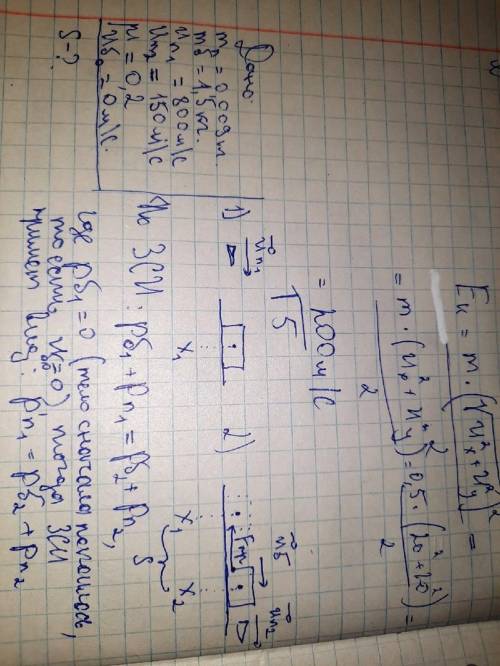 Eк = m · (√u²x + u²y)² =
2
= m · (u²₀ + u²y) = 0,5 · (20² + 20²) =
2
2
= 200 м/с
15
Дано:
mп = 0,009 кг.
mб = 1,5 кг.
uп₁ = 800 м/с
uп₂ = 150 м/с
μ = 0,2
uб₀ = 0 м/с.
S - ?
1) uп₁
x₁
2) uб uп₂
Fтр
x₁ x₂
S
По ЗСИ: pб₁ + pп₁ = pб₂ + pп₂,
где pб₁ = 0 (тело сначала покоится,
то есть uб₀ = 0), тогда ЗСИ
примет вид: pп₁ = pб₂ + pп₂